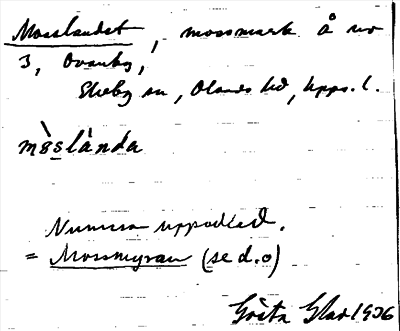 Mosslandet, mossmark å nr
3, Ovanby,
Ekeby sn, Olands hd, Upps. l.
Numera uppodlad.
= Mossmyran (se d.o)
Gösta Glas 1936